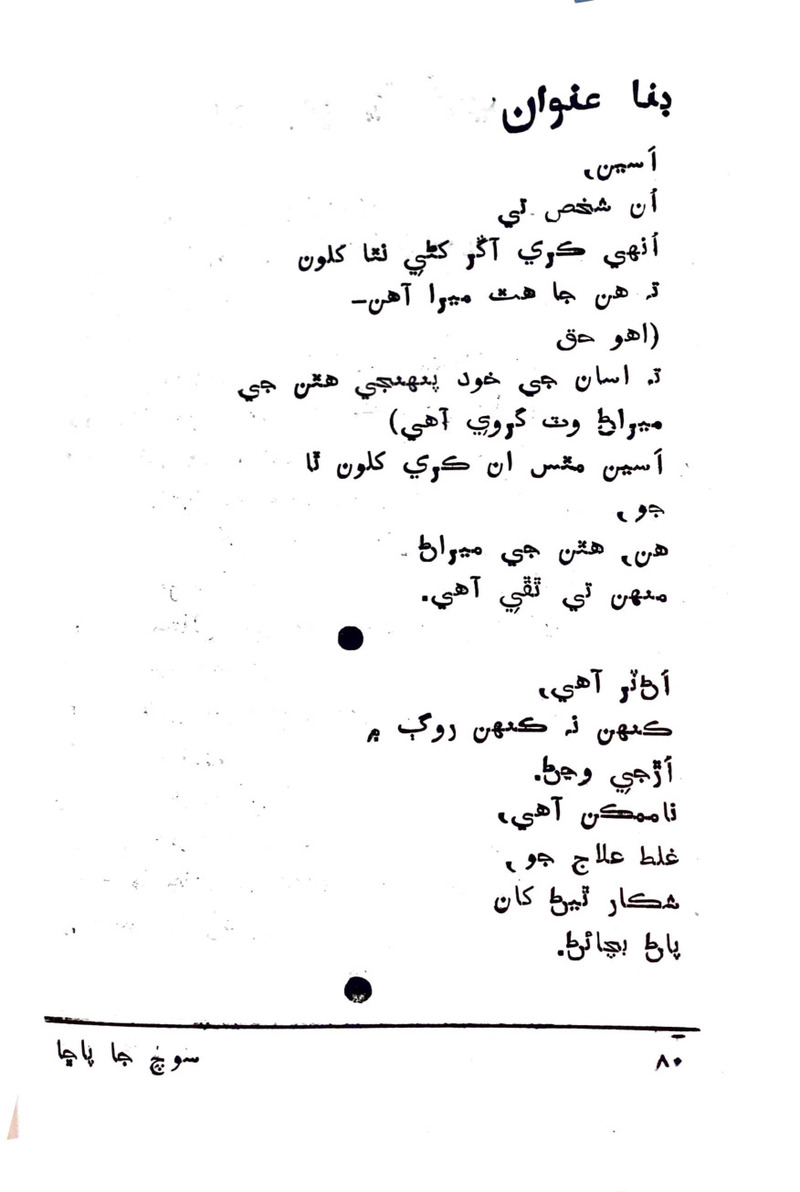 بنا عنوان
اَسين،
اُن شخص تي
اُنهي ڪري آڱر کڻي نٿا کلون
تہ هن جا هٿ ميرا آهن–
(اهو حق
تہ اسان جي خود پنهنجي هٿن جي
ميراڻ وٽ گروي آهي)
اَسين مٿس ان ڪري کلون ٿا
جو،
هن، هٿن جي ميراڻ
منهن تي ٿڦي آهي.
اَڻٽر آهي،
ڪنهن نہ ڪنهن روڳ ۾
اُڙجي وڃڻ.
ناممڪن آهي،
غلط علاج جو،
شڪار ٿيڻ کان
پاڻ بچائڻ.
۸۰
سوچ جا پاڇا